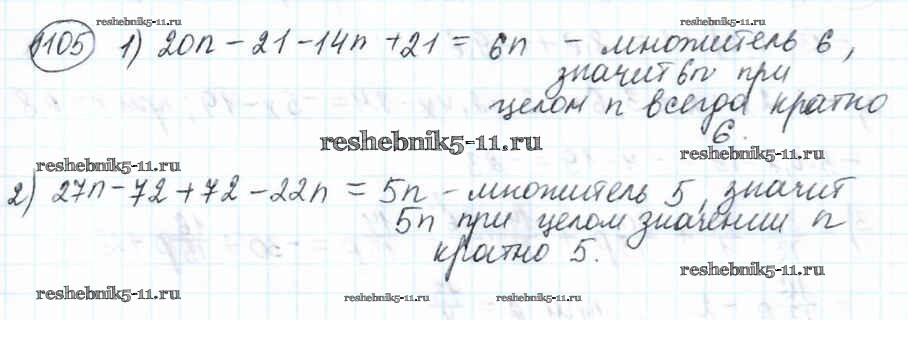 reshebnik5-11.ru reshebnik5-11.ru
1105 1) 20n - 21 - 14n + 21 = 6n - множитель 6,
значит 6n при
целом n всегда кратно
6.
reshebnik5-11.ru
reshebnik5-11.ru reshebnik5-11.ru
2) 27n - 72 + 72 - 22n = 5n - множитель 5, значит
5n при целом значении n
кратно 5.
reshebnik5-11.ru
reshebnik5-11.ru reshebnik5-11.ru reshebnik5-11.ru